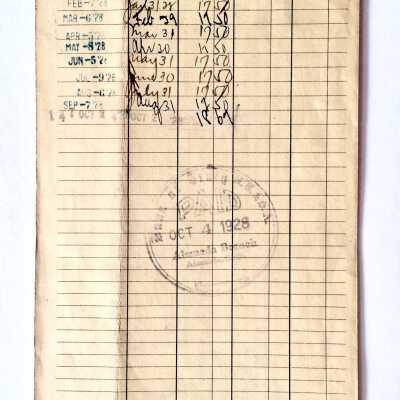 FEB -7 '28 Jan 31 28 17.50
MAR -6 '28 Feb 29 17.50
APR -5 '28 Mar 31 17.50
MAY -8 '28 Apr 30 17.50
JUN -5 '28 May 31 17.50
JUL -9 '28 June 30 17.50
AUG -6 '28 July 31 17.50
SEP -7 '28 Aug 31 17.50
OCT
PAID
OCT 4 1928
Alameda Branch